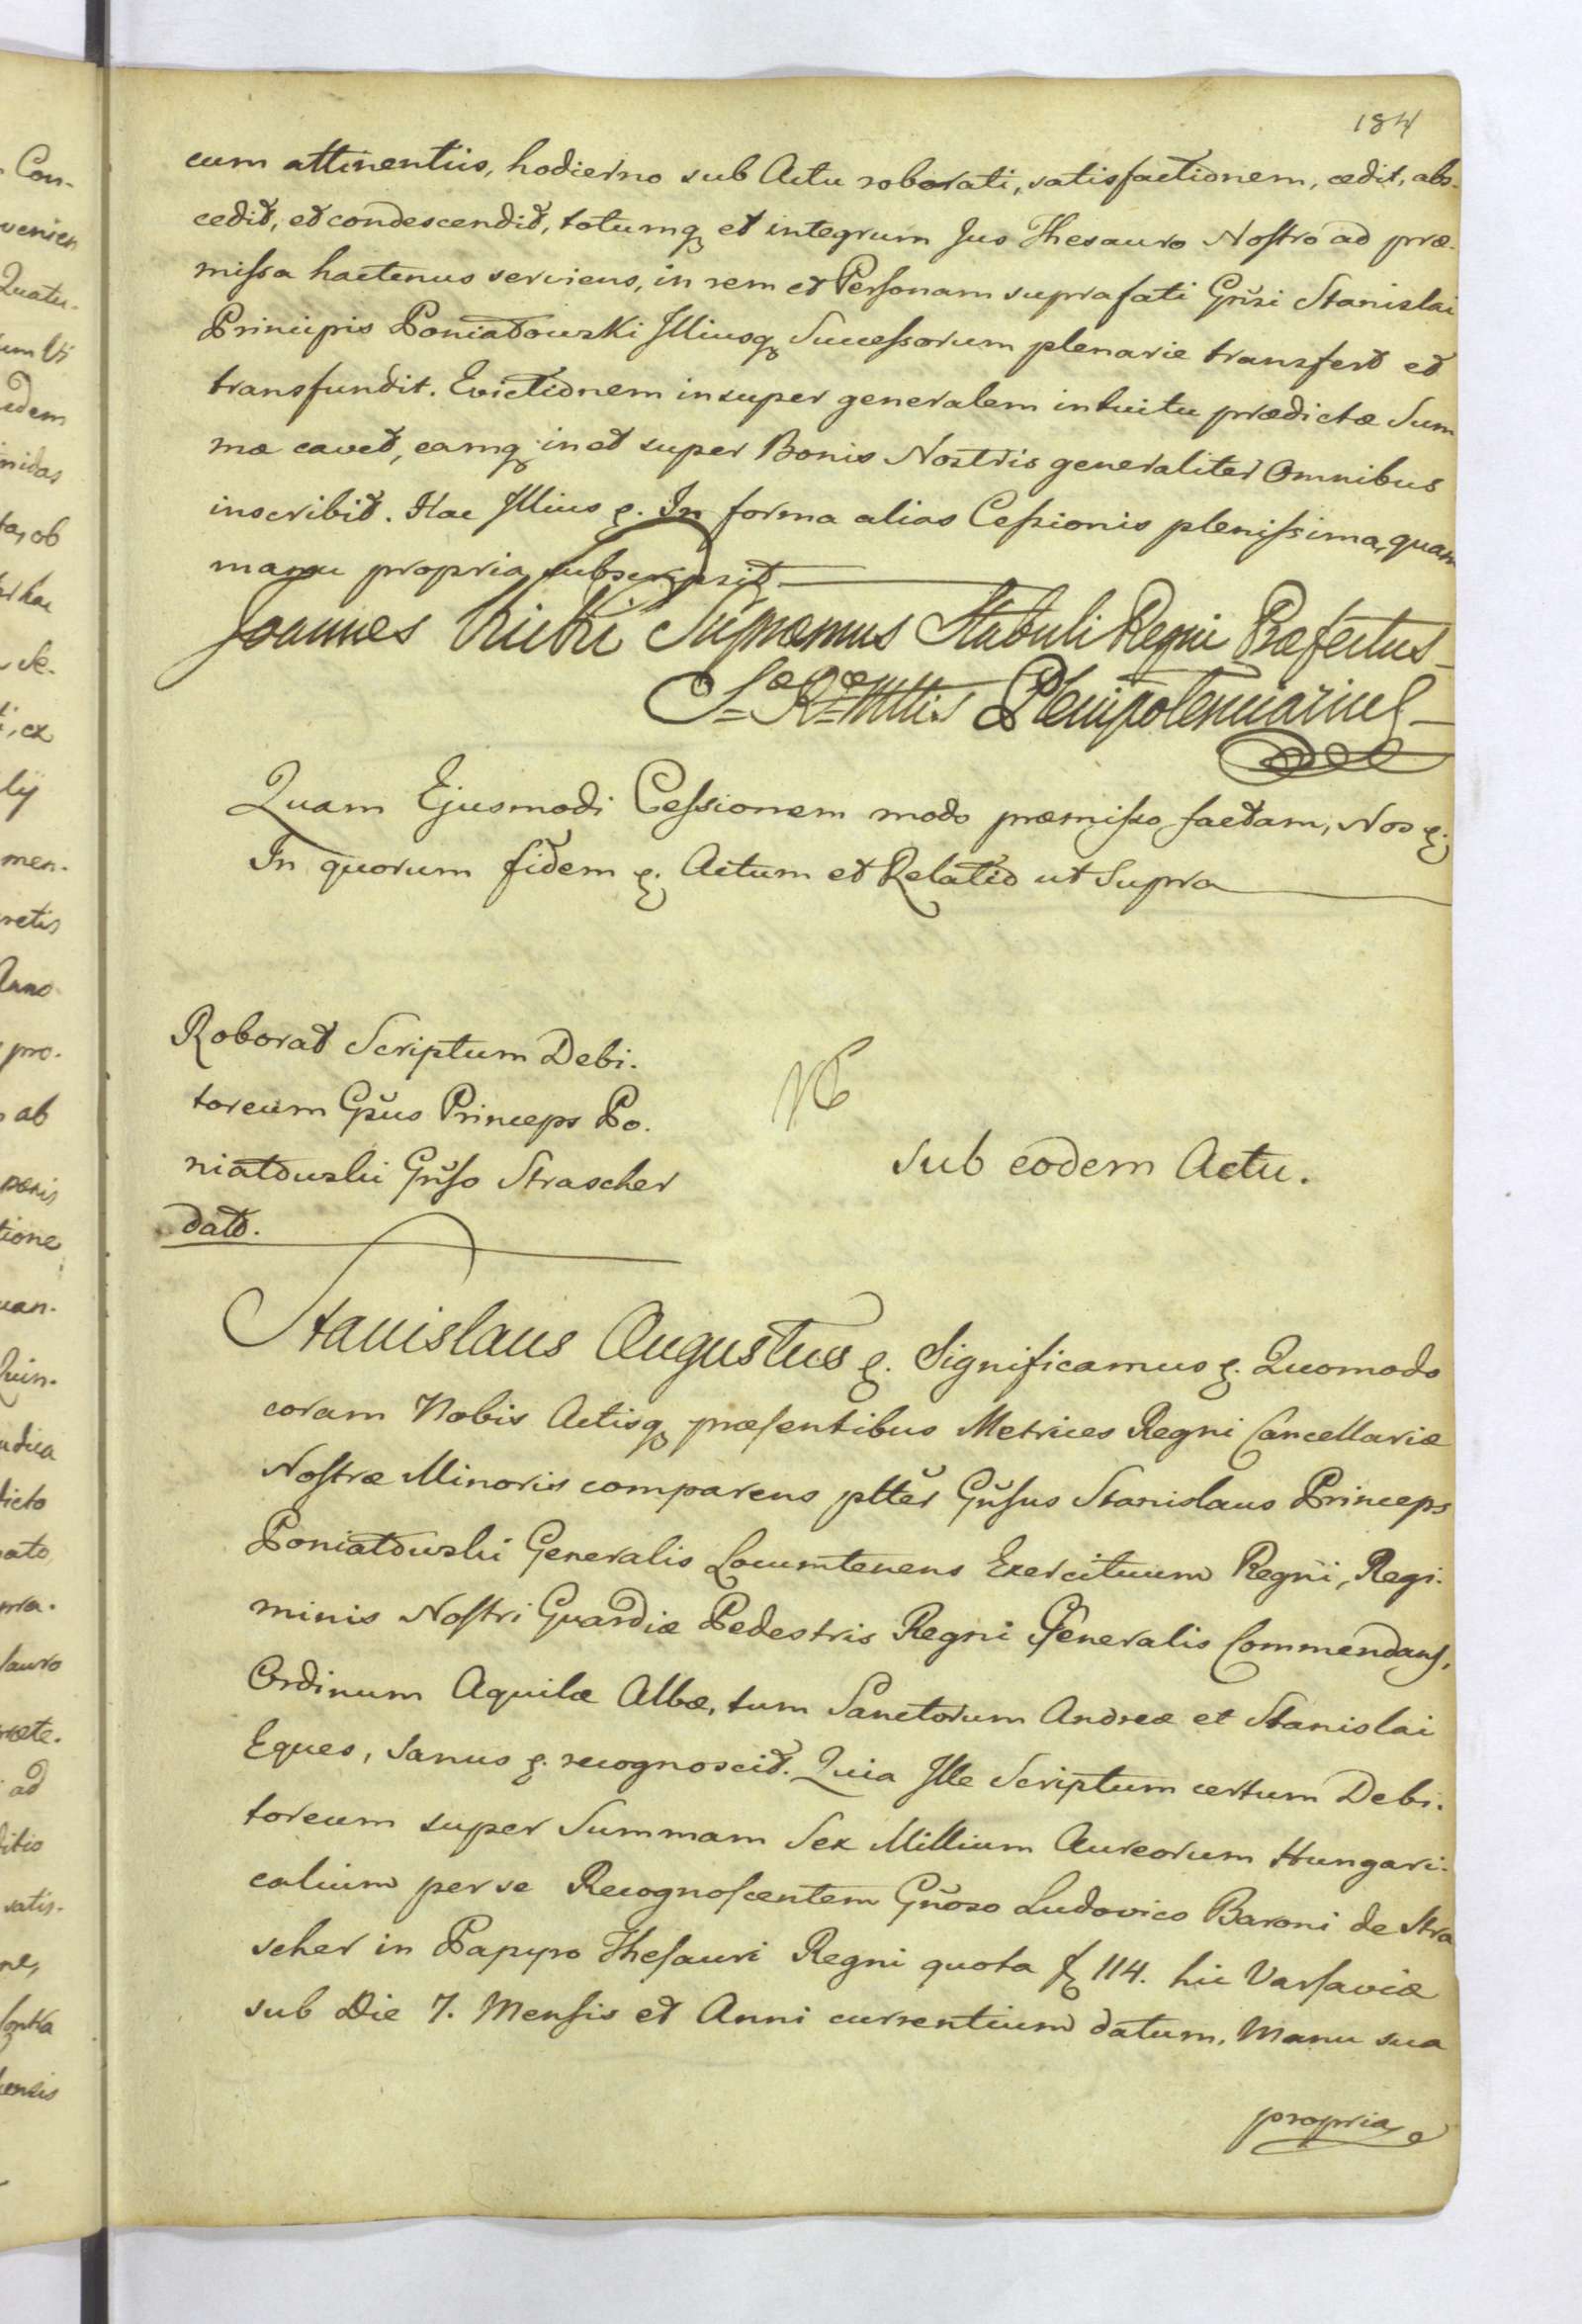 184
cum attinentiis, hodierno sub Actu roborati, satisfactionem, cedit, abs-
cedit, et condescendit, totumq₃ et integrum Jus Thesauro Nostro ad præ-
missa hactenus serviens, in rem et Personam suprafati Gñsi Stanislai
Principis Poniatowski Illiusq₃ Successorum plenarie transfert et
transfundit. Evictionem insuper generalem intuitu prædictæ Sum
mæ cavet, eamq₃ in et super Bonis Nostris generaliter Omnibus
inscribit. Hac Illius ꝛ. In forma alias Cessionis plenissima, quam
manu propria subscripsit
Joannes Kicki Supræmus Stabuli Regni Præfectus
S=æ R=æ Mttis Plenipotentiarius
Quam Ejusmodi Cessionem modo præmisso factam, Nos ꝛ.
In quorum fidem ꝛ. Actum et Relatio ut Supra
Roborat Scriptum Debi-
toreum Gñus Princeps Po-
niatowski Gñso Strascher
dat.
sub eodem Actu.
Stanislaus Augustus ꝛ. Significamus ꝛ. Quomodo
coram Nobis Actisq₃ præsentibus Metrices Regni Cancellariæ
Nostræ Minoris comparens plter̃ Gñsus Stanislaus Princeps
Poniatowski Generalis Locumtenens Exercituum Regni, Regi-
minis Nostri Guardiæ Pedestris Regni Generalis Commendans,
Ordinum Aquilæ Albæ, tum Sanctorum Andreæ et Stanislai
Eques, Sanus ꝛ. recognoscit. Quia Ille Scriptum certum Debi-
toreum super Summam Sex Millium Aureorum Hungari-
calium per se Recognoscentem Gñoso Ludovico Baroni de Stra
scher in Papyro Thesauri Regni quota f₃ 114. hic Varsaviæ
sub Die 7. Mensis et Anni currentium datum, Manu sua
propria